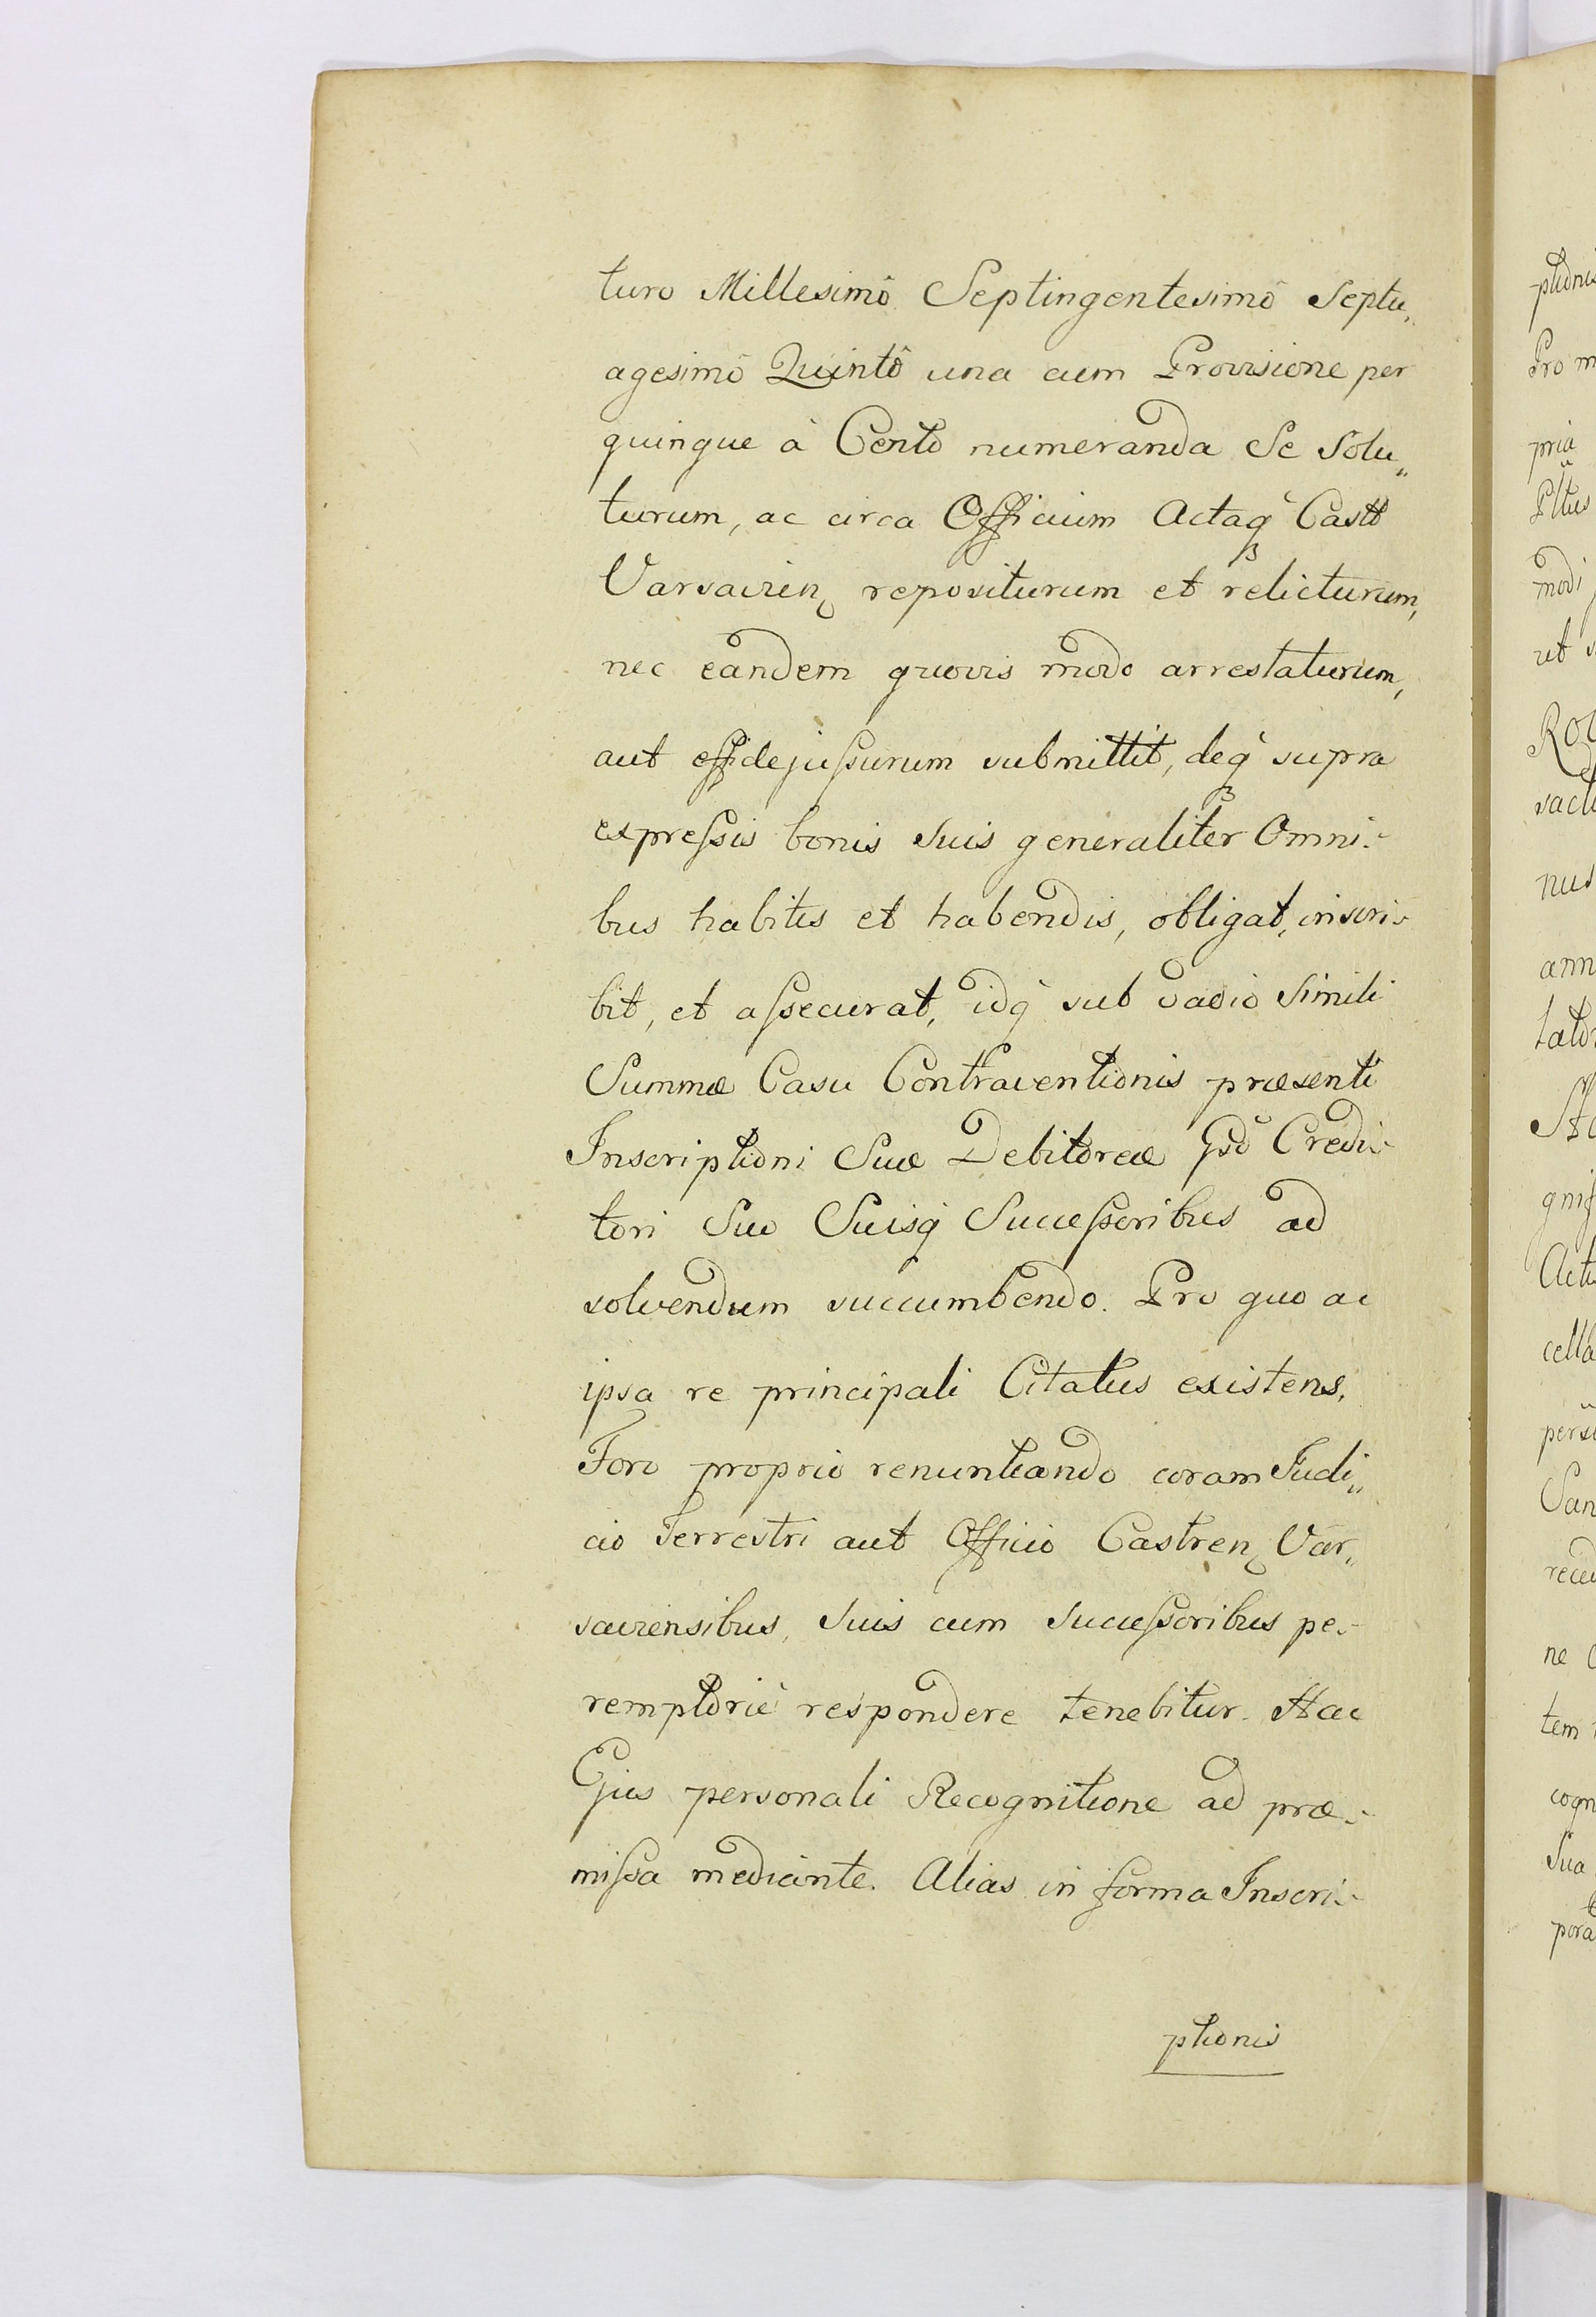 turo Millesimô Septingentesimô Septu„
agesimô Quintô una cum Provisione per
quinque à Cento numeranda Se Solu„
turum, ac circa Officium Actaq̀ Castt
Varsavien, repositurum et relicturum,
nec eandem quovis modo arrestaturum,
aut effidejuſsurum submittit, deq̀ supra
expreſsis bonis suis generaliter Omni-
bus habitis et habendis, obligat, inscri-
bit, et aſsecurat, idq̀ sub vadio Simili
Summæ Casu Contraventionis præsenti
Inscriptioni Suæ Debitoreæ Gsō Credi-
tori Suo Suisq̀ Succeſsoribus ad
solvendum succumbendo. Pro quo ac
ipsa re principali Citatus existens,
Foro proprio renuntiando coram Judi„
cio Terrestri aut Officio Castren, Var„
saviensibus, Suis cum Succeſsoribus pe-
remptoriè respondere tenebitur. Hac
Ejus personali Recognitione ad præ-
miſsa mediante. Alias in forma Inscri-
ptionis
ptionis
Pro m
pria
modi
ut
nus
cella
ne
tem
cogn
Sua